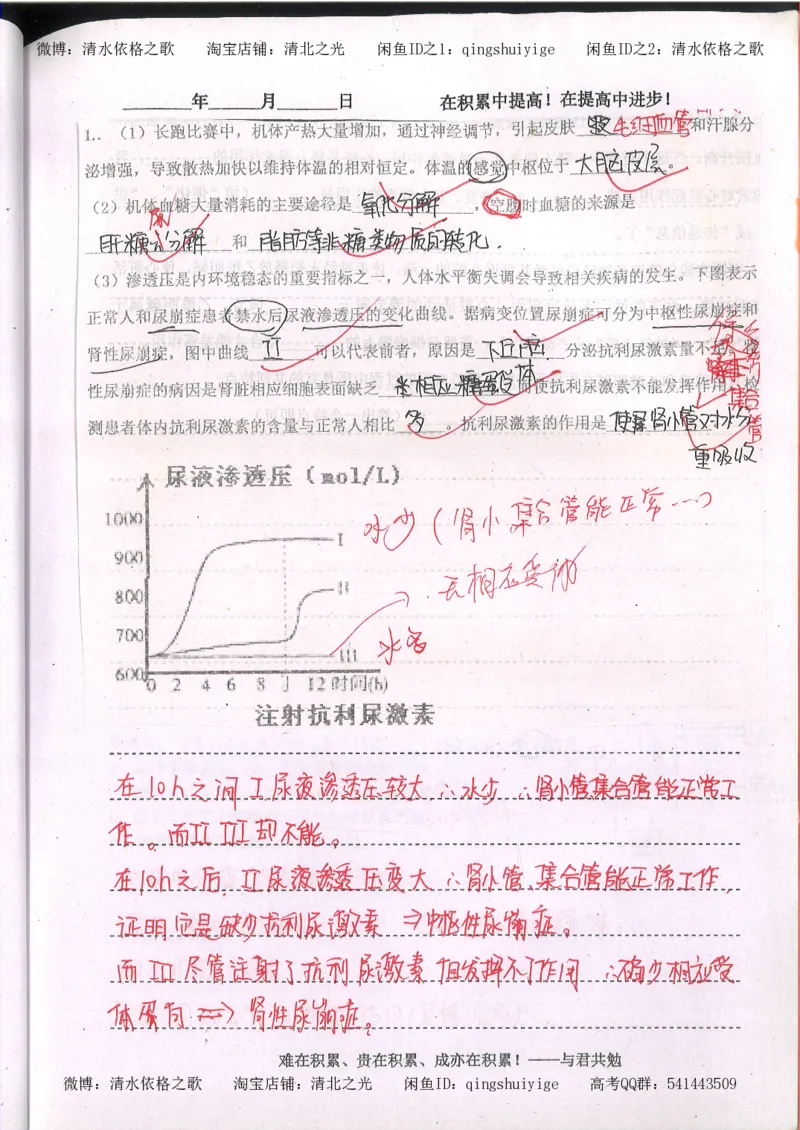 微博：清水依格之歌 淘宝店铺：清北之光 闲鱼ID之1：qingshuiyige 闲鱼ID之2：清水依格之歌
年 月 日 在积累中提高！在提高中进步！
1.. （1）长跑比赛中，机体产热大量增加，通过神经调节，引起皮肤 毛细血管 和汗腺分
泌增强，导致散热加快以维持体温的相对恒定。体温的感觉中枢位于 大脑皮层。
（2）机体血糖大量消耗的主要途径是 氧化分解 ，空腹时血糖的来源是
肝糖原分解 和 脂肪等非糖类物质的转化．
（3）渗透压是内环境稳态的重要指标之一，人体水平衡失调会导致相关疾病的发生。下图表示
正常人和尿崩症患者禁水后尿液渗透压的变化曲线。据病变位置尿崩症可分为中枢性尿崩症和
肾性尿崩症，图中曲线 II 可以代表前者，原因是 下丘脑 分泌抗利尿激素量不足。肾
性尿崩症的病因是肾脏相应细胞表面缺乏 相应糖蛋白 受体 而使抗利尿激素不能发挥作用，检
测患者体内抗利尿激素的含量与正常人相比 多 。抗利尿激素的作用是 使 肾小管对水分
集合管
重吸收
尿液渗透压（mol/L）
1000
900
800
700
600
I
II
III
0 2 4 6 8 12 时间(h)
注射抗利尿激素
水少（肾小 集合管能正常…）
无相应受
水多
在10h之间 I 尿液渗透压较大 ∴水少 ∴肾小管集合管能正常工
作。而 II III 却不能。
在10h之后，II 尿液渗透压变大 ∴肾小管、集合管能正常工作，
证明应是缺少抗利尿激素 ⇒中枢性尿崩症。
而 III 尽管注射了抗利尿激素 但发挥不了作用 ∴缺少相应受
体蛋白 ⇒ 肾性尿崩症。
难在积累、贵在积累、成亦在积累！——与君共勉
微博：清水依格之歌 淘宝店铺：清北之光 闲鱼ID：qingshuiyige 高考QQ群：541443509